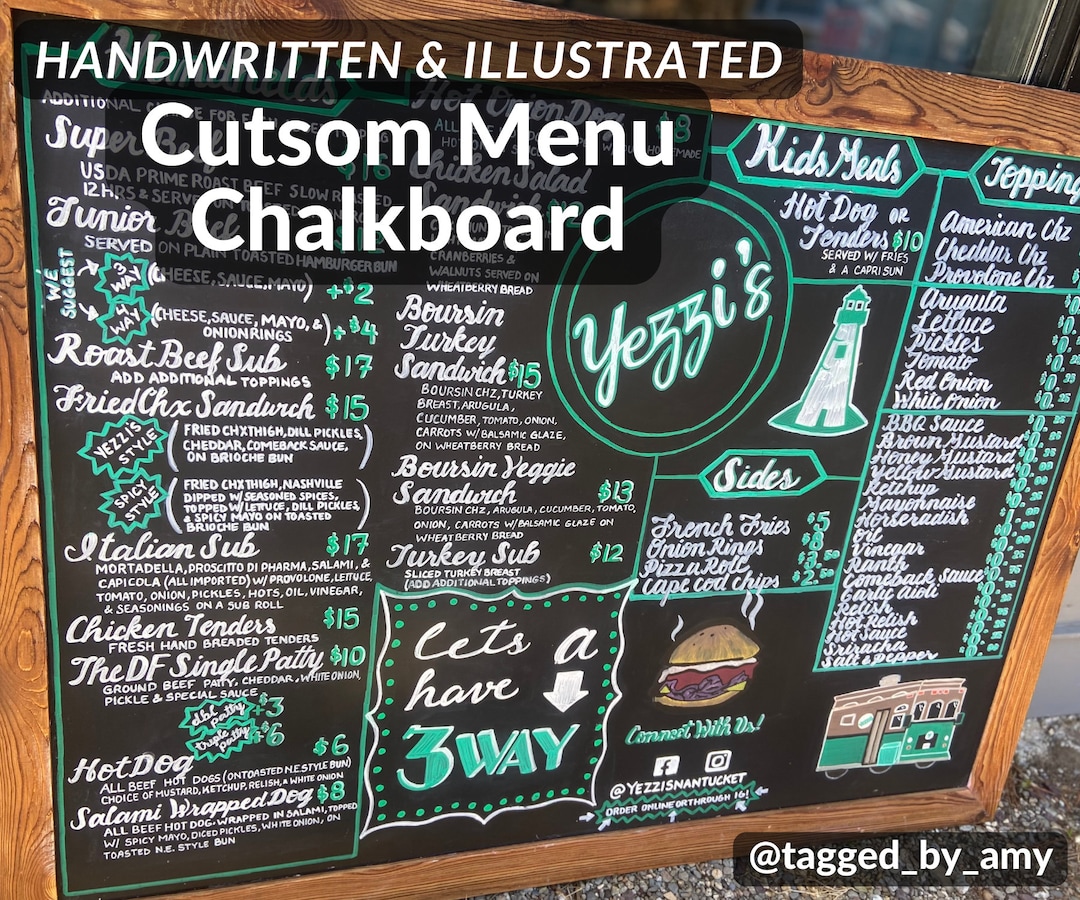 HANDWRITTEN & ILLUSTRATED
Cutsom Menu
Chalkboard
Super Beef
$16
USDA PRIME ROAST BEEF SLOW ROASTED
Junior Beef
SERVED ON PLAIN TOASTED HAMBURGER BUN
WE SUGGEST
3 WAY
(CHEESE, SAUCE, MAYO)
+$2
4 WAY
(CHEESE, SAUCE, MAYO, &
ONION RINGS)
+$4
Roast Beef Sub $17
ADD ADDITIONAL TOPPINGS
Fried Chx Sandwich $15
YEZZI'S STYLE
(FRIED CHX THIGH, DILL PICKLES,
CHEDDAR, COMEBACK SAUCE,
ON BRIOCHE BUN)
SPICY STYLE
(FRIED CHX THIGH, NASHVILLE
DIPPED W/ SEASONED SPICES,
TOPPED W/ LETTUCE, DILL PICKLES,
& SPICY MAYO ON TOASTED
BRIOCHE BUN)
Italian Sub $17
MORTADELLA, PROSCITTO DI PHARMA, SALAMI, &
CAPICOLA (ALL IMPORTED) W/ PROVOLONE, LETTUCE,
TOMATO, ONION, PICKLES, HOTS, OIL, VINEGAR,
& SEASONINGS ON A SUB ROLL
Chicken Tenders $15
FRESH HAND BREADED TENDERS
The DF Single Patty $10
GROUND BEEF PATTY, CHEDDAR, WHITE ONION,
PICKLE & SPECIAL SAUCE
dbl patty +$3
triple patty +$6
Hot Dog $6
ALL BEEF HOT DOGS (ON TOASTED N.E. STYLE BUN)
CHOICE OF MUSTARD, KETCHUP, RELISH, & WHITE ONION
Salami Wrapped Dog $8
ALL BEEF HOT DOG, WRAPPED IN SALAMI, TOPPED
W/ SPICY MAYO, DICED PICKLES, WHITE ONION, ON
TOASTED N.E. STYLE BUN
Hot Onion Dog
$8
Chicken Salad
Sandwich
CRANBERRIES &
WALNUTS SERVED ON
WHEATBERRY BREAD
Boursin
Turkey
Sandwich $15
BOURSIN CHZ, TURKEY
BREAST, ARUGULA,
CUCUMBER, TOMATO, ONION,
CARROTS W/ BALSAMIC GLAZE,
ON WHEATBERRY BREAD
Boursin Veggie
Sandwich $13
BOURSIN CHZ, ARUGULA, CUCUMBER, TOMATO,
ONION, CARROTS W/ BALSAMIC GLAZE ON
WHEATBERRY BREAD
Turkey Sub $12
SLICED TURKEY BREAST
(ADD ADDITIONAL TOPPINGS)
lets a
have
3WAY
Yezzi's
Kids Meals
Hot Dog OR
Tenders $10
SERVED W/ FRIES
& A CAPRI SUN
Sides
French Fries $5
Onion Rings
Pizza Roll
Cape Cod Chips $2.50
Connect With Us!
@YEZZISNANTUCKET
ORDER ONLINE OR THROUGH IG!
Topping
American Chz
Cheddar Chz
Provolone Chz
Arugula
Lettuce
Pickles
Tomato
Red Onion
White Onion
BBQ Sauce
Brown Mustard
Honey Mustard
Yellow Mustard
Ketchup
Mayonnaise
Horseradish
Oil
Vinegar
Ranth
Comeback Sauce
Garlic Aioli
Relish
Hot Relish
Hot Sauce
Sriracha
Salt & Pepper
@tagged_by_amy